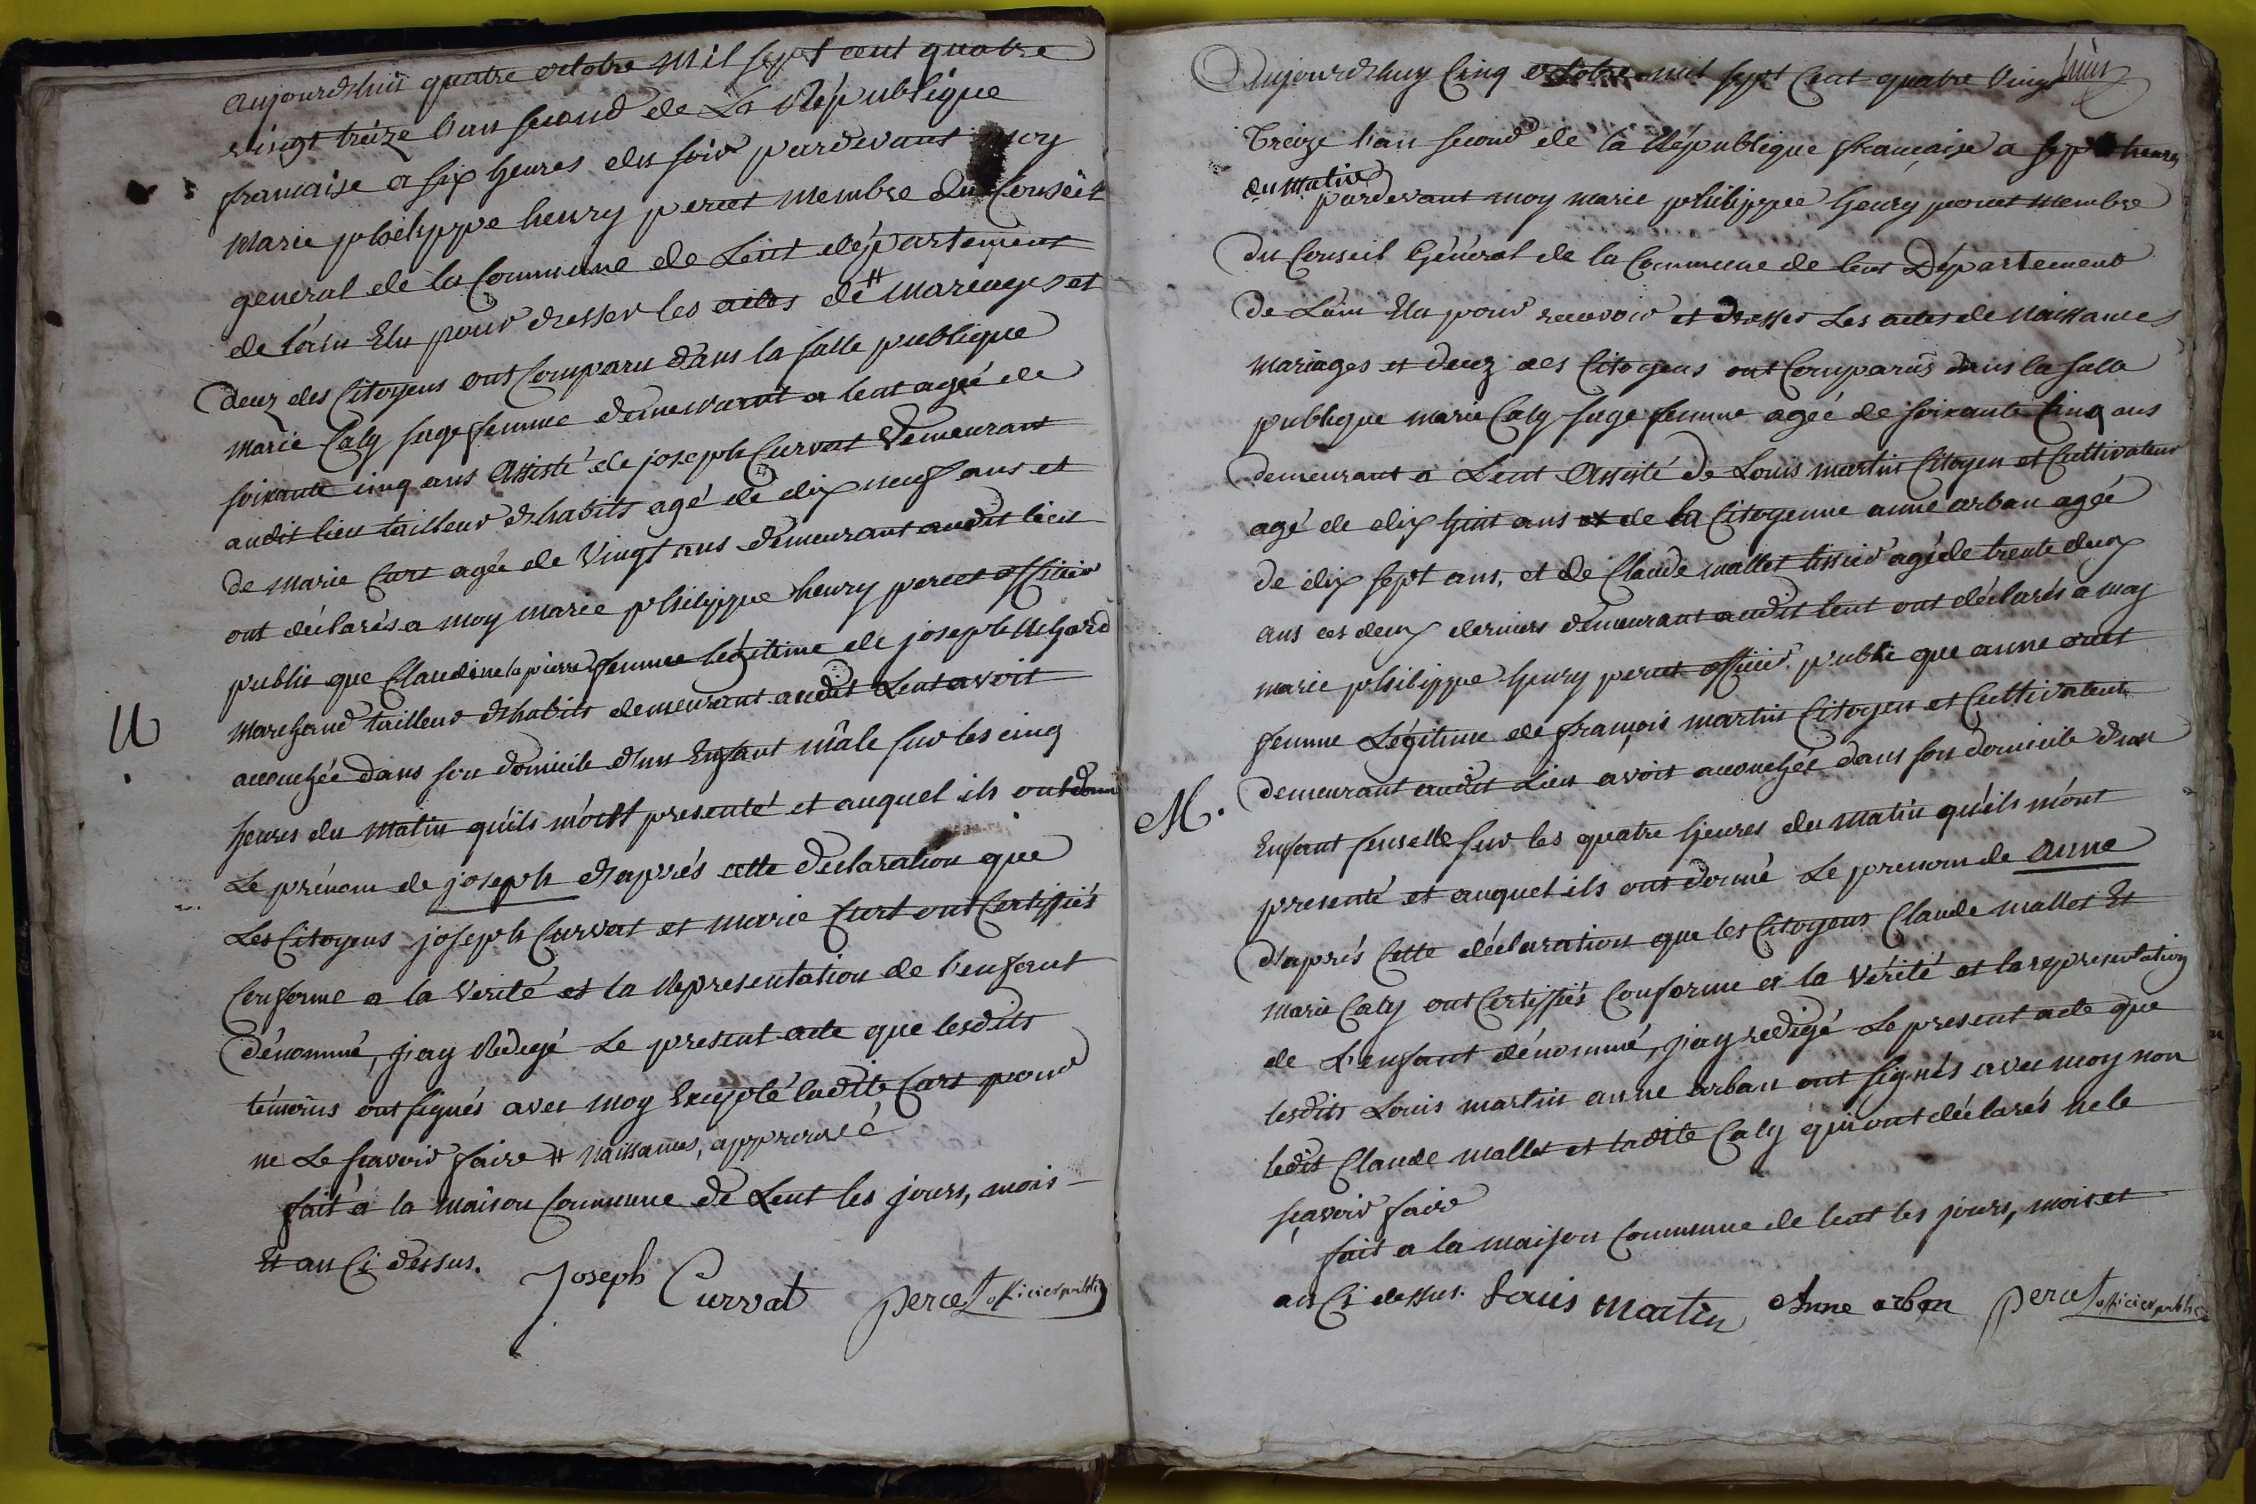 aujourdhui quatre octobre mil sept cent quatre
vingt treize l'an second de La République
francaise a six heures du soir pardevant moy
Marie philippe henry peret membre du Conseil
general de la Commune de Lent département
de l'ain Elu pour dresser les actes de # mariages et
deuz des Citoyens ont Comparu dans la salle publique
marie Caly sage femme demeurant a lent agée de
soixante cinq ans Assisté de joseph Curvat demeurant
audit lieu tailleur d'habits agé de dix neuf ans et
de marie Curt agée de vingt ans demeurant audit lieu
ont déclarés a moy marie philippe henry peret officier
public que Claudine lapierre femme légitime de joseph
marchand tailleur d'habits demeurant audit Lent avoit
accouchée dans son domicile d'un Enfant mâle sur les cinq
heures du matin qu'ils m'ont presenté et auquel ils ont donné
Le prénom de joseph d'aprés cette declaration que
Les Citoyens joseph Curvat et marie Curt ont Certiffiés
Conforme a la verité et la Representation de l'enfant
dénommé, j'ay Rédigé Le present acte que lesdits
témoins ont signés avec moy Excepté ladite Curt pour
ne Le sçavoir faire # naissances, approuvé
fait à la maison Commune de Lent les jours, mois
Et an Ci dessus.
Joseph Curvat
peret officier public
U
huit
Aujourdhuy Cinq octobre mil sept Cent quatre Vingt
Treize l'an second de la République francaise a sept heures
du matin
pardevant moy marie philippe henry peret membre
du Conseil Général de la Commune de lent Département
de L'ain Elu pour recevoir et dresser Les actes de Naissances
mariages et deuz des Citoyens ont Comparus dans la salle
publique marie Caly sage femme agée de soixante Cinq ans
demeurant a Lent Assisté de Louis martin Citoyen et Cultivateur
agé de dix huit ans et de la Citoyenne anne arban agée
de dix sept ans, et de Claude mallet tissier agé de trente deux
ans ces deux derniers demeurant audit lent ont déclarés a moy
marie philippe henry peret officier public que anne
femme Légitime de françois martin Citoyen et Cultivateur
demeurant audit Lieu avoit accouchée dans son domicile d'un
M.
Enfant femelle sur les quatre heures du matin qu'ils m'ont
presenté et auquel ils ont donné Le prenom de anne
d'aprés Cette déclaration que les Citoyens Claude mallet Et
marie Caly ont Certiffiés Conforme a la Vérité et la representation
de L'enfant dénommé, j'ay redigé Le present acte que
lesdits Louis martin anne arban ont signés avec moy non
ledit Claude mallet et ladite Caly qui ont déclarés ne le
sçavoir faire
fait a la maison Commune de lent les jours, mois et
an Ci dessus. Louis Martin Anne arban peret officier public